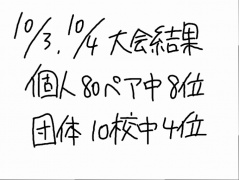 10/3.10/4大会結果
個人80ペア中8位
団体10校中4位